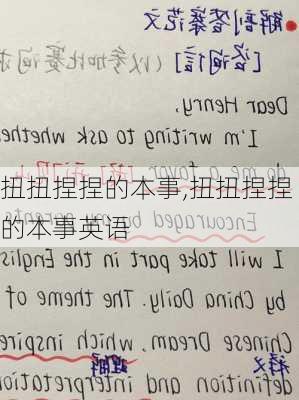 解剖答案范文
[咨询信](以参加比赛询
Dear Henry,
I'm writing to ask whethe
do me a favor
扭扭捏捏的本事,扭扭捏捏
的本事英语
Encouraged by parents
I will take part in the Englis
by China Daily. The theme of
Chinese Dream, which inspire
释义 理解
definition and interpretatio